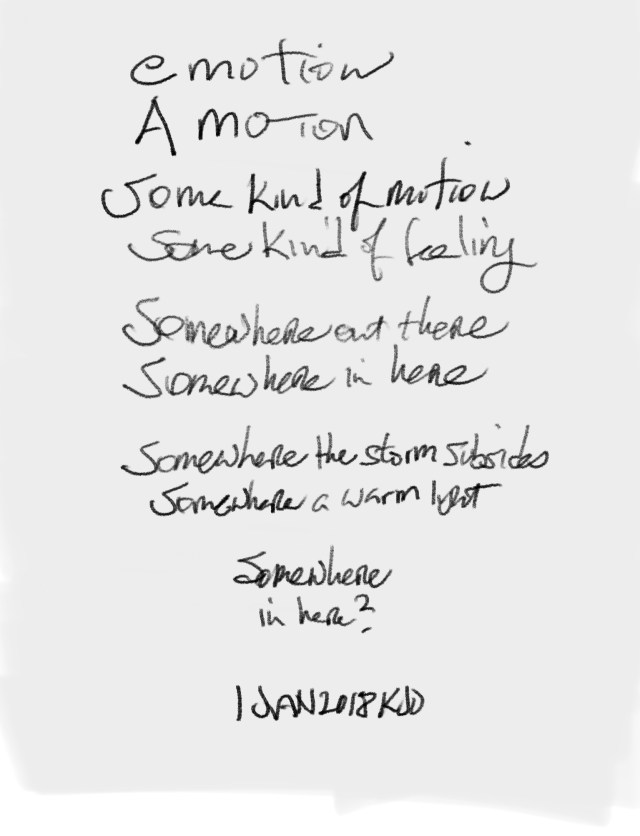 emotion
A motion
Some kind of motion
Some kind of feeling
Somewhere out there
Somewhere in here
Somewhere the storm subsides
Somewhere a warm light
Somewhere
in here?
1 JAN 2018 KJD